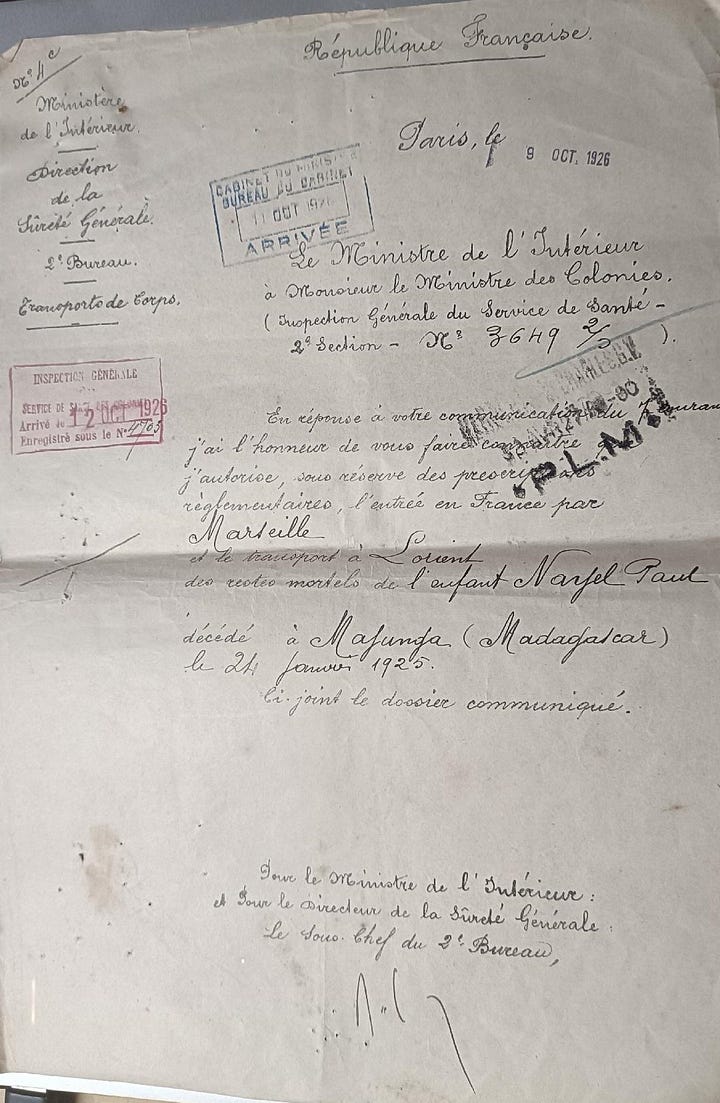 République Française.
N° 4 c
Ministère
de l'Intérieur.
Direction
de la
Sûreté Générale.
2e Bureau.
Transports de Corps.
Paris, le 9 OCT. 1926
CABINET DU MINISTRE
BUREAU DU CABINET
11 OCT 1926
ARRIVÉE
Le Ministre de l'Intérieur
à Monsieur le Ministre des Colonies.
(Inspection Générale du Service de Santé -
2e Section - N° 3649 2/S ).
INSPECTION GÉNÉRALE
SERVICE DE
Arrivé le 12 OCT 1926
Enregistré sous le N° 4705
En réponse à votre communication du 7 courant
j'ai l'honneur de vous faire connaître que
j'autorise, sous réserve des prescriptions
règlementaires, l'entrée en France par
P.L.M.
Marseille
et le transport à Lorient
des restes mortels de l'enfant Paul
décédé à Majunga (Madagascar)
le 24 Janvier 1925.
Ci-joint le dossier communiqué.
Pour le Ministre de l'Intérieur :
et Pour le Directeur de la Sûreté Générale :
Le Sous-Chef du 2e Bureau,